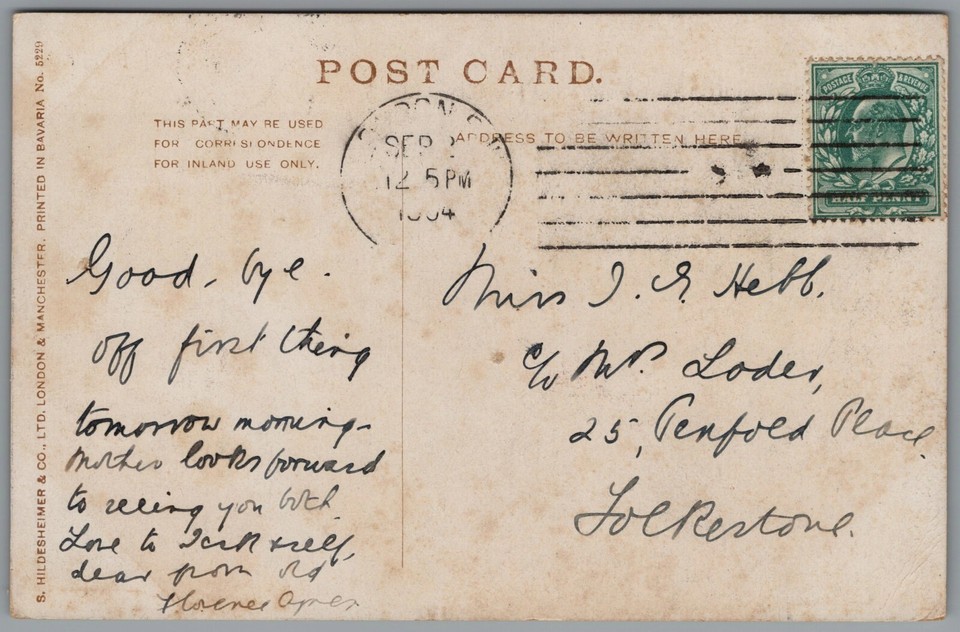 POST CARD.
THIS PART MAY BE USED
FOR CORRESPONDENCE
FOR INLAND USE ONLY.
ADDRESS TO BE WRITTEN HERE
POSTAGE & REVENUE
HALF PENNY
SEP
12 5 PM
1904
Good, bye.
off first thing
tomorrow morning-
Mother looks forward
to seeing you both
Love to Jack & self,
dear from old
Florence Agnes
Miss J. G. Hebb.
c/o Mrs. Loder,
25, Penfold Place
Folkestone.
S. HILDESHEIMER & CO., LTD. LONDON & MANCHESTER. PRINTED IN BAVARIA No. 5229